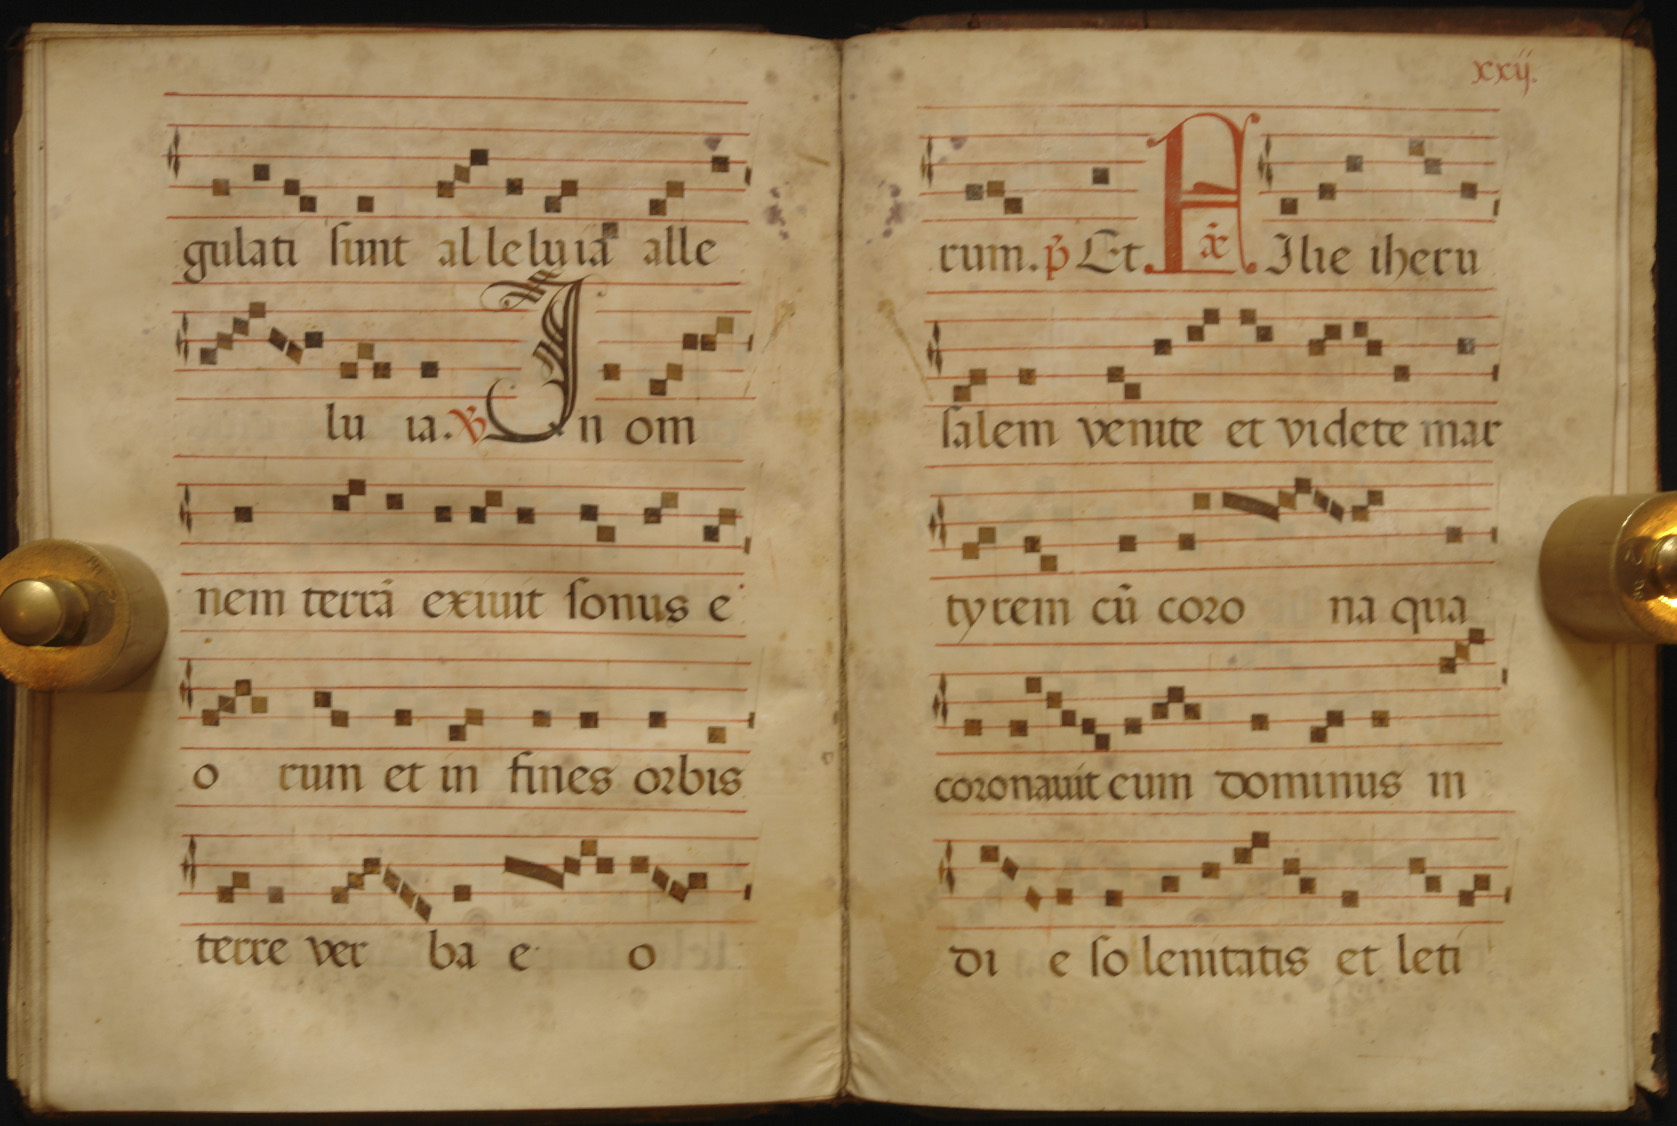 gulati sunt alleluia alle
lu ia. ℣ In om
nem terrā exivit sonus e
o rum et in fines orbis
terre ver ba e o
xxij.
rum. p̄ Et F Ilie iheru
salem venite et videte mar
tyrem cū coro na qua
coronavit eum dominus in
di e so lenitatis et leti